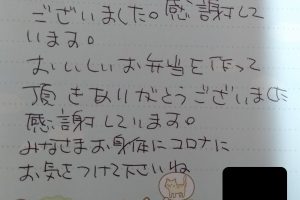 ございました。感謝して
います。
おいしいお弁当を作って
頂きありがとうございました
感謝しています。
みなさまお身体にコロナに
お気をつけて下さいね